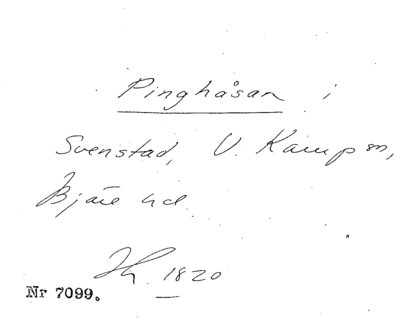 Pinghåsan i
Svenstad, V. Karup sn,
Bjäre hd.
1820
Nr 7099.